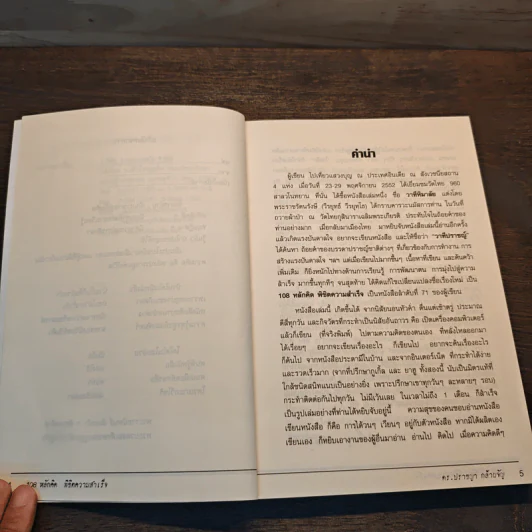 คำนำ
ผู้เขียน ไปเที่ยวแสวงบุญ ณ ประเทศอินเดีย ณ สังเวชนียสถาน
4 แห่ง เมื่อวันที่ 23-29 พฤศจิกายน 2552 ได้เยี่ยมชมวัดไทย 960
สาลวโนทยาน ที่นั่น ได้ซื้อหนังสือเล่มหนึ่ง ชื่อ วาทีพิมาลัย แต่งโดย
พระราชรัตนรังษี (วีรยุทธ์ วีรยุทฺโธ) ได้กราบคารวะนมัสการท่าน ในวันที่
ถวายผ้าป่า ณ วัดไทยกุสินาราเฉลิมพระเกียรติ ประทับใจในถ้อยคำของ
ท่านอย่างมาก เมื่อกลับมาเมืองไทย มาหยิบจับหนังสือเล่มนี้อ่านอีกครั้ง
แล้วเกิดแรงบันดาลใจ อยากจะเขียนหนังสือ และให้ชื่อว่า "วาทีปราชญ์"
ได้ค้นหา ถ้อยคำของบรรดาปราชญ์ชาติต่างๆ ที่เกี่ยวข้องกับการทำงาน การ
สร้างแรงบันดาลใจ ฯลฯ แต่เมื่อเขียนไปมากขึ้นๆ เนื้อหาที่เขียน และค้นคว้า
เพิ่มเติม ก็ยิ่งหนักไปทางด้านการเรียนรู้ การพัฒนาตน การมุ่งไปสู่ความ
สำเร็จ มากขึ้นทุกทีๆ จนสุดท้าย ได้คิดแก้ไขเปลี่ยนแปลงชื่อเรื่องใหม่ เป็น
108 หลักคิด พิชิตความสำเร็จ เป็นหนังสือลำดับที่ 71 ของผู้เขียน
หนังสือเล่มนี้ เกิดขึ้นได้ จากนิสัยนอนหัวค่ำ ตื่นแต่เช้าตรู่ ประมาณ
ตีสี่ทุกวัน และกิจวัตรที่กระทำเป็นนิสัยอันถาวร คือ เปิดเครื่องคอมพิวเตอร์
แล้วก็เขียน (ที่จริงพิมพ์) ไปตามความคิดของตนเอง ที่หลั่งไหลออกมา
ได้เรื่อยๆ อยากจะเขียนเรื่องอะไร ก็เขียนไป อยากจะค้นเรื่องอะไร
ก็ค้นไป จากหนังสือประดามีในบ้าน และจากอินเตอร์เน็ต ที่กระทำได้ง่าย
และรวดเร็วมาก (จากที่ปรึกษากูเกิ้ล และ ยาฮู ทั้งสองนี้ นับเป็นมิตรแท้ที่
ใกล้ชิดสนิทแนบเป็นอย่างยิ่ง เพราะปรึกษาเขาทุกวันๆ ละหลายๆ รอบ)
กระทำติดต่อกันไปทุกวัน ไม่มีเว้นเลย ในเวลาไม่ถึง 1 เดือน ก็สำเร็จ
เป็นรูปเล่มอย่างที่ท่านได้หยิบจับอยู่นี้ ความสุขของคนชอบอ่านหนังสือ
เขียนหนังสือ ก็คือ การได้วนๆ เวียนๆ อยู่กับตัวหนังสือ หากมิได้ผลิตเอง
เขียนเอง ก็หยิบเอางานของผู้อื่นมาอ่าน อ่านไป คิดไป เมื่อความคิดดีๆ
108 หลักคิด พิชิตความสำเร็จ
ดร.ปราชญา กล้าผจัญ 5